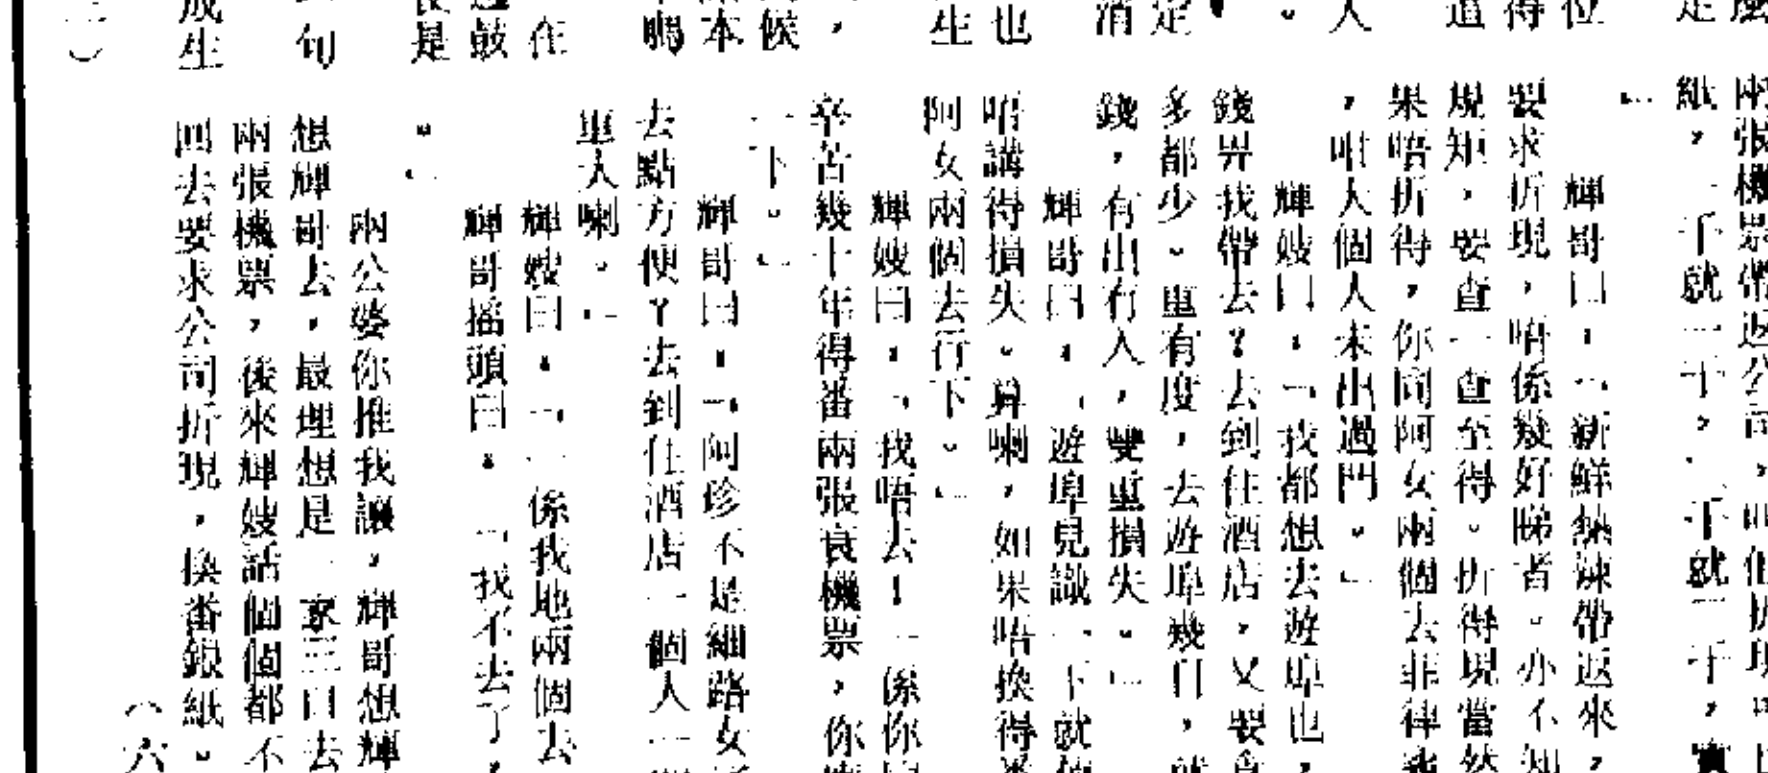 兩張機票帶返公司，
紙，一千就一千，二千就二千，實
」
輝哥曰：「新鮮熱辣帶返來，
要求折現，唔係幾好睇者。亦不知
規矩，要查一查至得。折得現當然
果唔折得，你同阿女兩個去菲律
，咁大個人未出過門。」
輝嫂曰：「我都想去遊埠也，
錢畀我帶去？去到住酒店，又要食
多都少。重有度，去遊埠幾日，
錢，有出冇入，雙重損失。」
輝哥曰：「遊埠見識一下就
唔講得損失。算喇，如果唔換得番
阿女兩個去行下。」
輝嫂曰：「我唔去！一係你
辛苦幾十年得番兩張衰機票，你
一下。」
輝哥曰：「阿珍不是細路女
去點方便？去到住酒店一個人一
重大喇。」
輝嫂曰：「一係我地兩個去
輝哥搖頭曰：「我不去了，
。」
兩公婆你推我讓，輝哥想輝
想輝哥去，最理想是一家三口去
兩張機票，後來輝嫂話個個都不
回去要求公司折現，換番銀紙。
（六
么
是
位
得
道
人
。
定
消
也
生
，
候
本
鳴
在
鼓
是
句
成生
三）